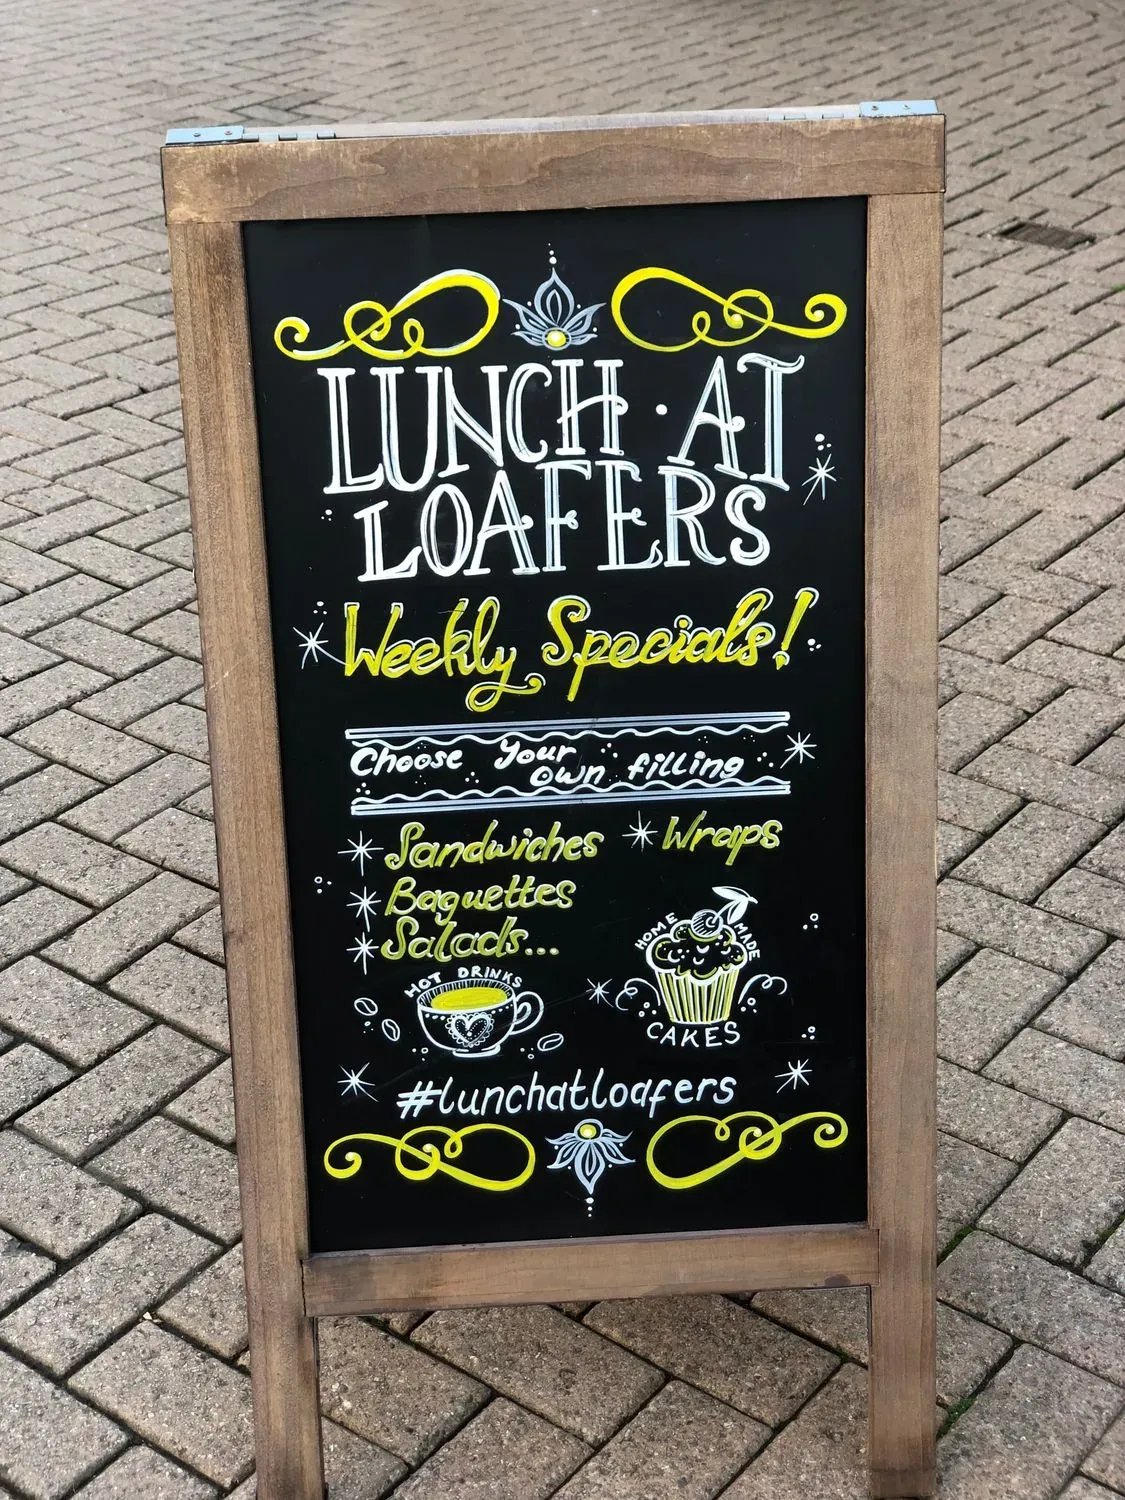 LUNCH · AT
LOAFERS
Weekly Specials!
Choose Your
own filling
Sandwiches Wraps
Baguettes
Salads...
HOME MADE
CAKES
HOT DRINKS
#lunchatloafers